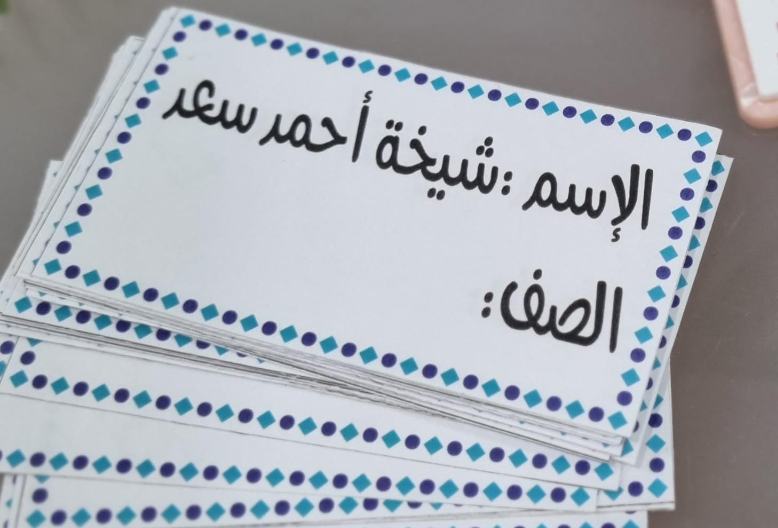 الإسم :شيخة أحمد سعد
الصف: